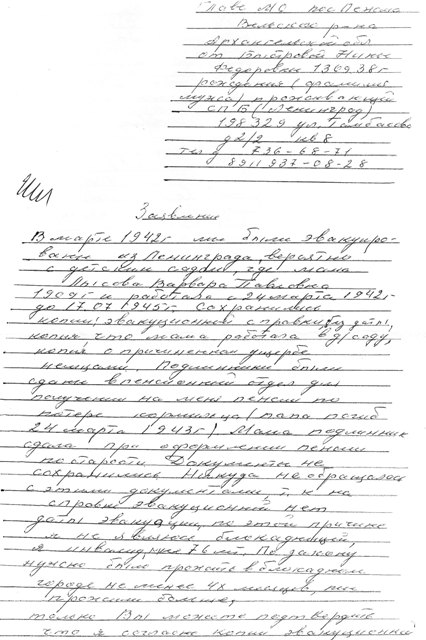 Главе МО пос Пежма
Вельского р-на
Архангельской обл
от Быстровой Нины
Федоровны 13.09.38г
рождения (фамилия
мужа) проживающей
СПБ (Ленинград)
198329 ул. Тамбасова
д 2/2 кв 8
тел д 736-68-71
8911 937-08-28
Заявление
В марте 1942г мы были эвакуиро-
ваны из Ленинграда, вероятно
с детским садом, где мама
Лысова Варвара Павловна
1909г и работала с 24 марта 1942г
до 17.07 1945г. Сохранились
копии: эвакуационной справки без даты,
копия, что мама работала в д/саду,
копия о причиненном ущербе
немцами. Подлинники были
сданы в пенсионный отдел для
получения на меня пенсии по
потере кормильца (папа погиб
24 марта 1943г) Мама подлинник
сдала при оформлении пенсии
по старости Документы не
сохранились Никуда не обращалась
с этими документами, т.к на
справке эвакуационной нет
даты эвакуации, по этой причине
я не являюсь блокадницей,
я инвалид, мне 76 лет. По закону
нужно было прожить в блокадном
городе не менее 4х месяцев, мы
прожили больше,
только Вы можете подтвердить
что я согласно копии эвакуационной